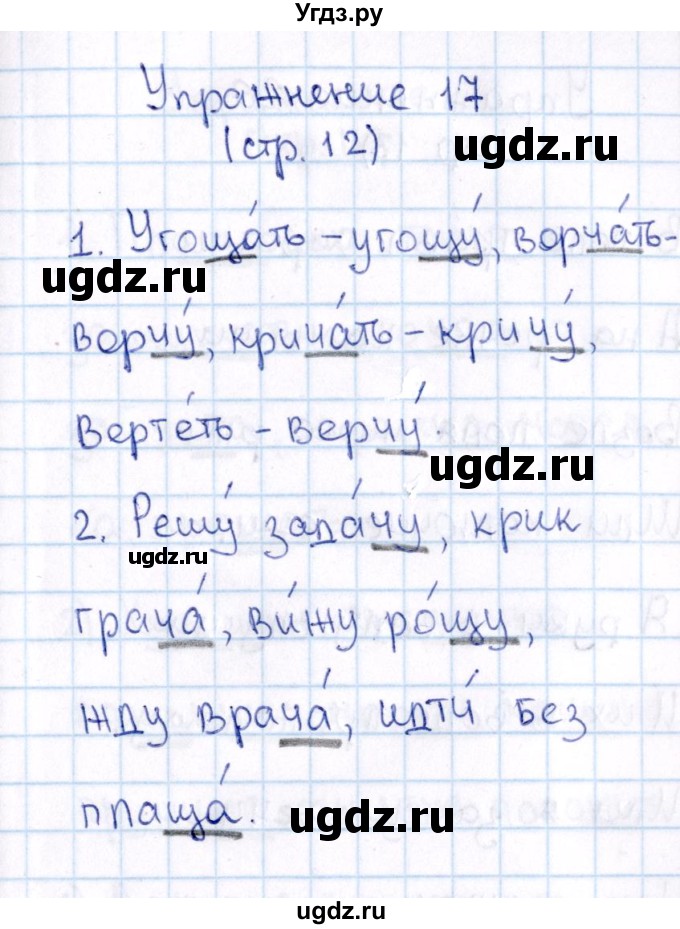 Угдз.ру
Упражнение 17
(стр. 12)
ugdz.ru
1. Угоща́ть – угощу́, ворча́ть-
ugdz.ru
ворчу́, крича́ть – кричу́,
верте́ть – верчу́.
ugdz.ru
2. Решу́ зада́чу, крик
ugdz.ru
грача́, ви́жу ро́щу,
жду врача́, идти́ без
плаща́.
ugdz.ru
ugdz.ru